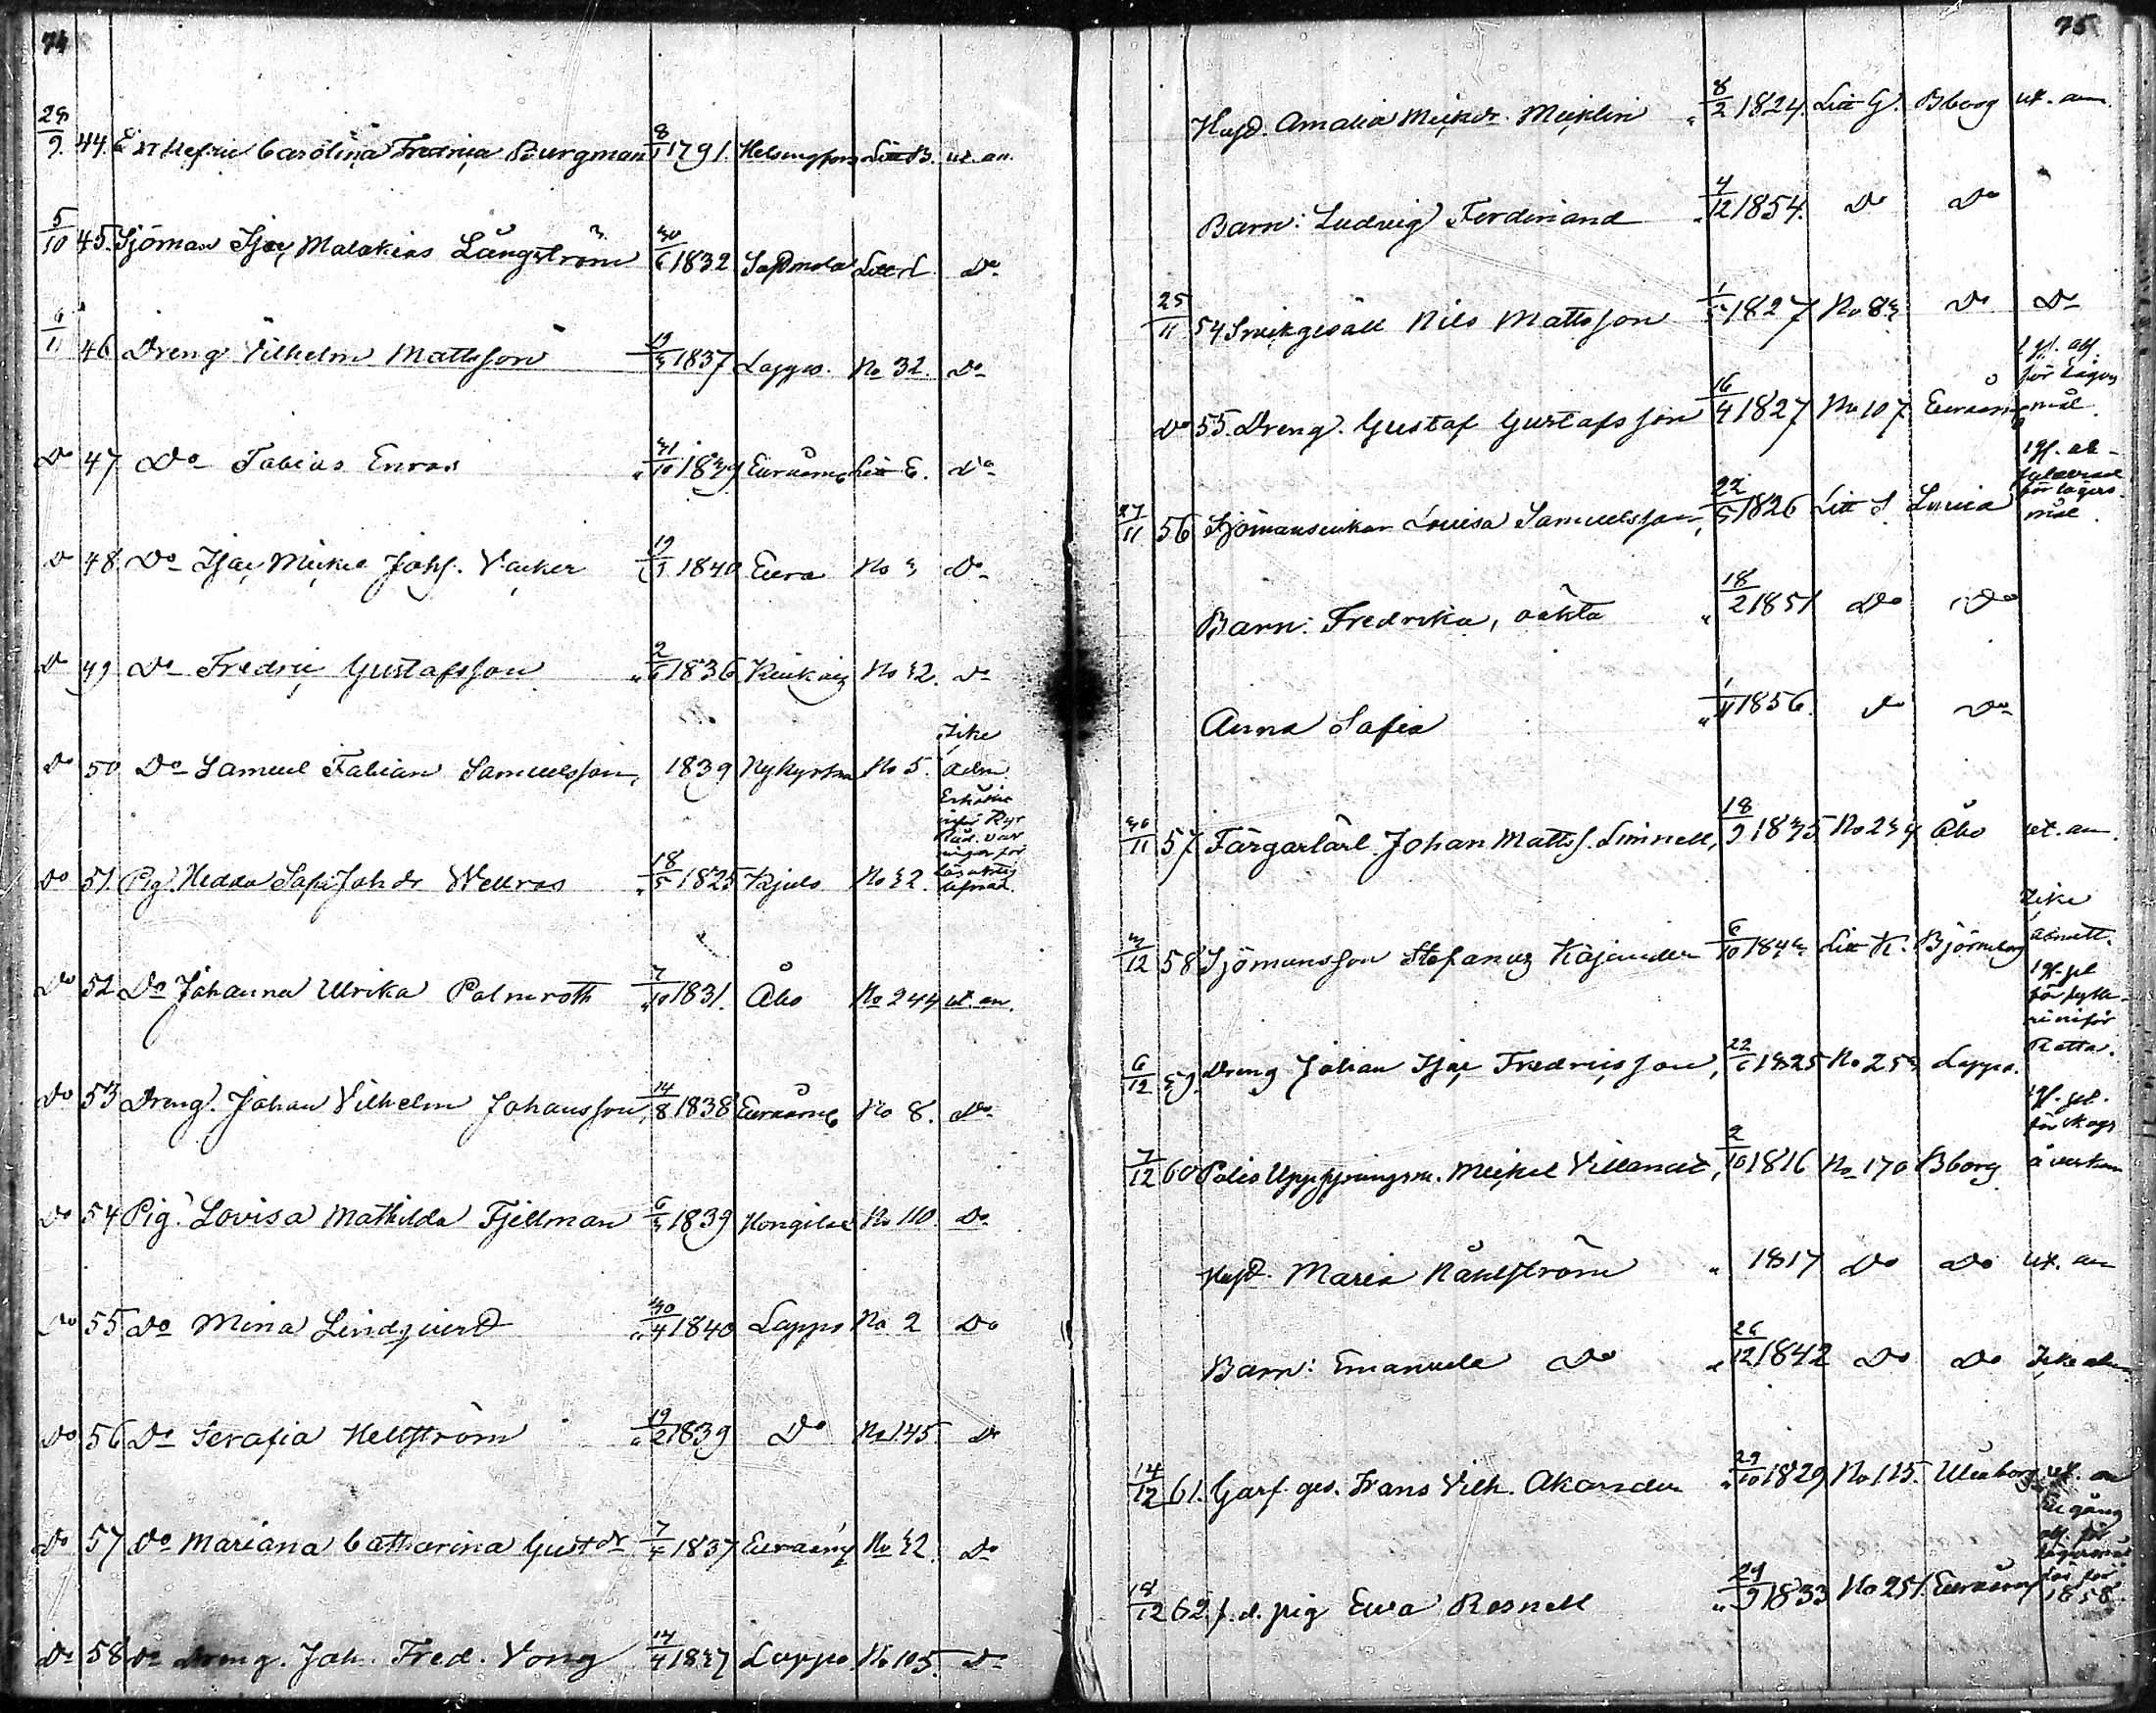 74
29/9. 44. Carolina Fredrica Burgman 8/1 1791. Helsingfors Litt B. ut. an.
5/10 45. Sjöman Isac Malakias Långström 30/6 1832 Litt L. Do
6/11 46 Dreng Vilhelm Mattsson 19/3 1837 Lappo. No 32. Do
Do 47 Do Tobias Enros 31/10 1839 Euraåmb Litt E. Do
Do 48 Do Isac Mickel Johs. Vacker 19/1 1840 Eura No 3 Do
Do 49 Do Fredric Gustafsson 2/6 1836 Kiukais No 32. Do
Icke
Do 50 Do Samuel Fabian Samuelsson, 1839 Nykyrka No 5. adm.
Do 51 Pig. Hedda Safia Joh dr Wellros 18/5 1825 Kjulo No 32.
Do 52 Do Johanna Ulrika Palmroth 7/10 1831. Åbo No 244 ut. an.
Do 53 Dreng. Johan Vilhelm Johansson, 14/8 1838 Euraåmb No 8. Do
Do 54 Pig. Lovisa Mathilda Fjellman 6/3 1839 Hongilax No 110 Do
Do 55 Do Mina Lindqvist 30/4 1840 Lappo No 2 Do
Do 56 Do Serafia Hellström 19/2 1839 Do No 145. Do
Do 57 Do Mariana Catharina Gust dr 7/4 1837 Euraåmb No 32. Do
Do 58 Do Dreng. Joh. Fred. Vong 14/4 1837 Lappo No 105. Do
75
Hust. Amalia Mickdr. Micklin 8/2 1824. Litt G. Bborg ut. an.
Barn: Ludvig Ferdinand 4/12 1854. Do Do
25/11 54 Smikgesäll Nils Mattsson 1827 No 83 Do Do
1 gg. abs.
för lägers
Do 55. Dreng. Gustaf Gustafsson 16/4 1827 No 107 Euraåmb mål.
1 gg. ab-
solverad
för lägers-
27/11 56 Sjömansenkan Lovisa Samuelsson, 22/5 1826 Litt S. Luvia mål.
Barn: Fredrika, oäkta 18/2 1851 Do Do
Anna Safia 1/11 1856. Do Do
30/11 57 Färgarlärl. Johan Matts s. Linnell, 18/9 1835 No 234 Åbo ut. an.
Icke
3/12 58 Sjömansson Stefanus Kajander 6/10 184 Litt K. Björneborg admitt.
6/12 59. Dreng Johan Isac Fredricsson, 22/6 1825 No 253 Lappo.
7/12 60 Polis Uppsyningsm. Mickel Villandt, 2/10 1816 No 170 Bborg åverkan
Hust. Maria Nählström 1817 Do Do ut. an
Barn: Emanuel Do 26/12 1842 Do Do Icke adm.
14/12 61. Garf. ges. Frans Vilh. Akander 29/10 1829 No 115. Uleåborg ut. an
En gång
abs. för
lägersmål
18/12 62. f. d. pig Eva Rosnell 29/9 1833 No 251. Euraåmb 1858.